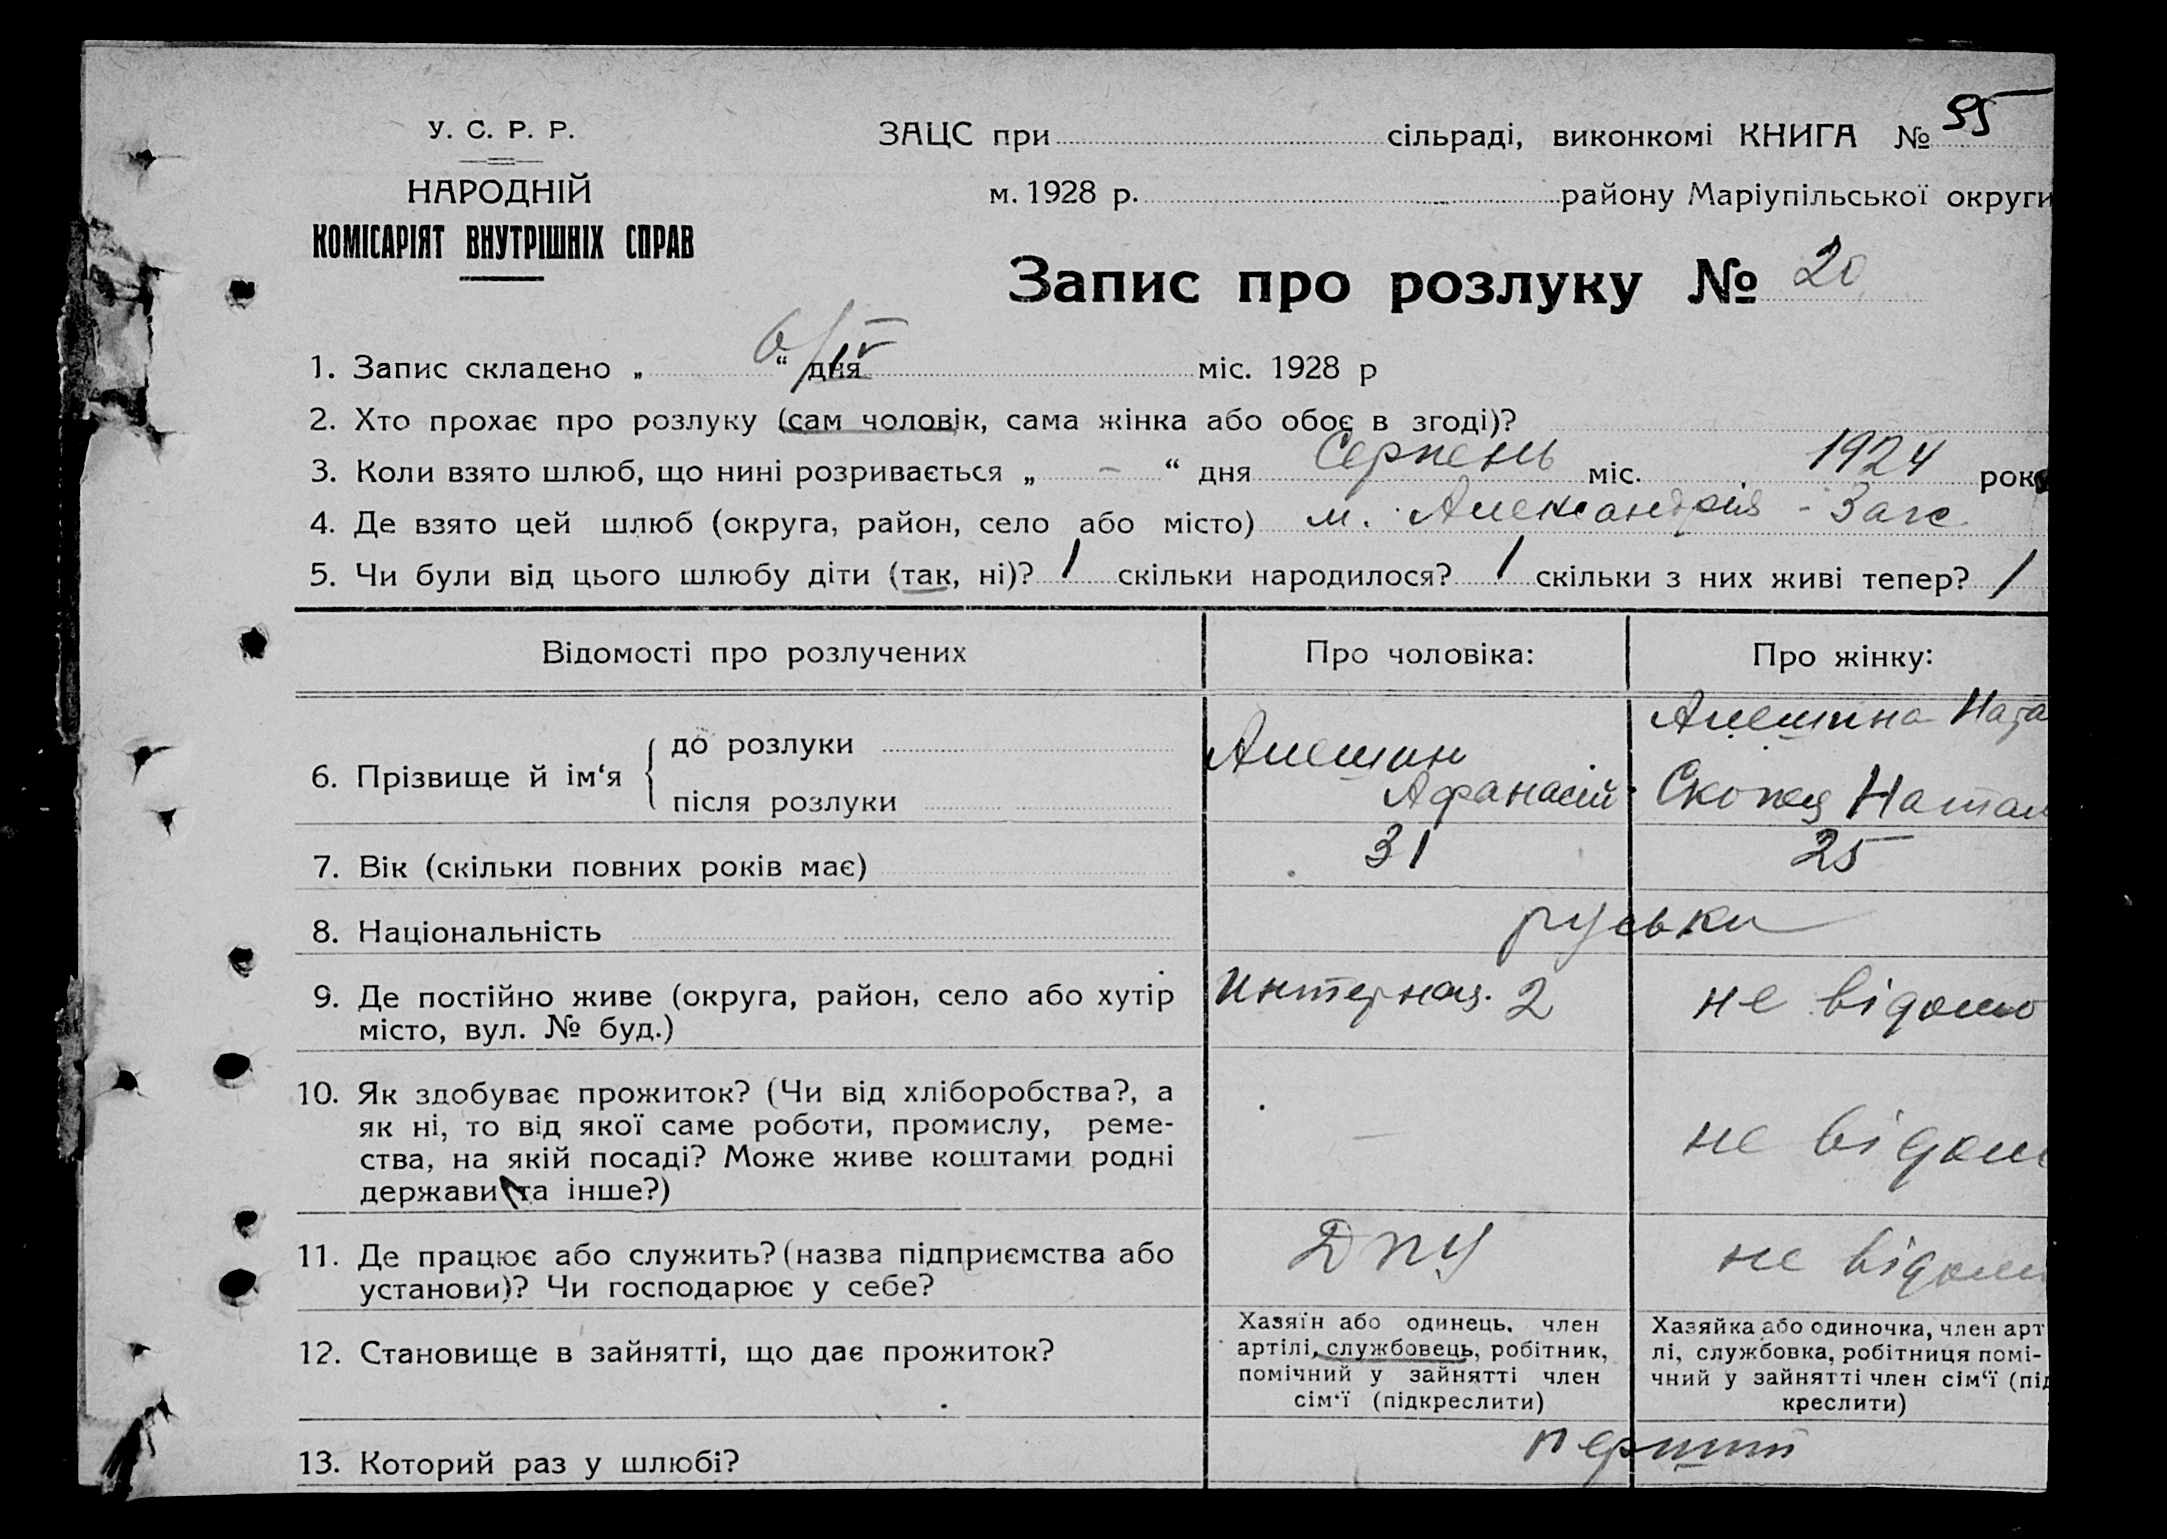 У. С. Р. Р.
НАРОДНІЙ
КОМІСАРІЯТ ВНУТРІШНІХ СПРАВ
ЗАЦС при сільраді, виконкомі КНИГА № 55
м. 1928 р. району Маріупільської округи
Запис про розлуку № 20
1. Запис складено „ 6/IV “ дня міс. 1928 р
2. Хто прохає про розлуку (сам чоловік, сама жінка або обоє в згоді)?
3. Коли взято шлюб, що нині розривається „ – “ дня Серпень міс. 1924 рок
4. Де взято цей шлюб (округа, район, село або місто) м. Александрія - Загс
5. Чи були від цього шлюбу діти (так, ні)? 1 скільки народилося? 1 скільки з них живі тепер? 1
Відомості про розлучених Про чоловіка: Про жінку:
6. Прізвище й ім‘я
до розлуки
після розлуки
Алешин
Афанасій
Алешина Ната
Скопец Натал
7. Вік (скільки повних років має) 31 25
8. Національність руськи
9. Де постійно живе (округа, район, село або хутір
місто, вул. № буд.)
Интернац. 2
не відомо
10. Як здобуває прожиток? (Чи від хліборобства?, а
як ні, то від якої саме роботи, промислу, реме-
ства, на якій посаді? Може живе коштами родні
держави та інше?)
—
не відом
11. Де працює або служить? (назва підприємства або
установи)? Чи господарює у себе?
ДПУ
не відом
12. Становище в зайнятті, що дає прожиток?
Хазяїн або одинець. член
артілі, службовець, робітник,
помічний у зайнятті член
сім‘ї (підкреслити)
Хазяйка або одиночка, член арт
лі, службовка, робітниця помі-
чний у зайнятті член сім‘ї (під
креслити)
13. Которий раз у шлюбі? перший